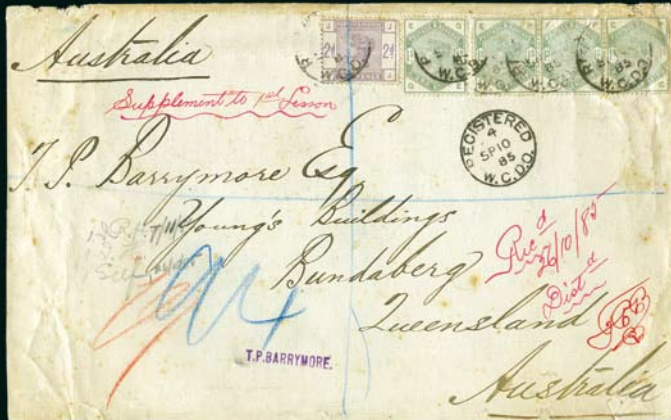 Australia
2d 2d
W.C.D.O. W.C.D.O. W.C.D.O.
Supplement to 1st Lesson
REGISTERED
4
SP 10
85
W.C.D.O.
T. P. Barrymore Esq
Young's Buildings
Bundaberg
Queensland
Australia
Recd
26/10/85
Distd
T.P. BARRYMORE.